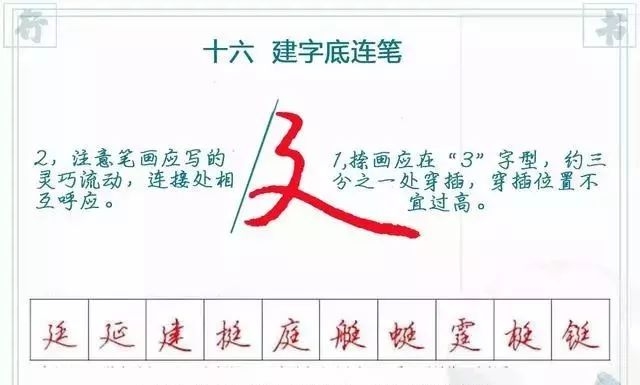 行
书
十六 建字底连笔
2，注意笔画应写的
灵巧流动，连接处相
互呼应。
1,捺画应在“3”字型，约三
分之一处穿插，穿插位置不
宜过高。
廴
廷 延 建 挺 庭 艇 蜓 霆 梃 铤